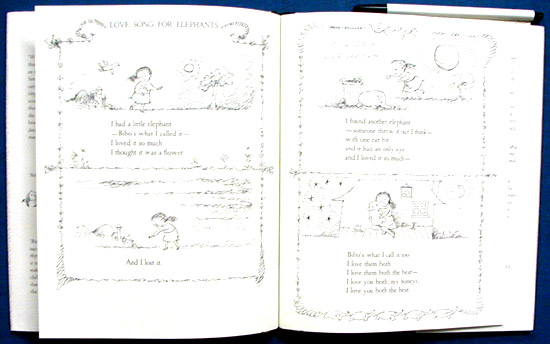 LOVE SONG FOR ELEPHANTS
I had a little elephant
—Bibo's what I called it—
I loved it so much
I thought it was a flower
And I lost it.
I found another elephant
—someone threw it out I think—
with one ear bit
and it had an only eye
and I loved it so much—
Bibo's what I call it too
I love them both
I love them both the best—
I love you both, my honeys,
I love you both the best